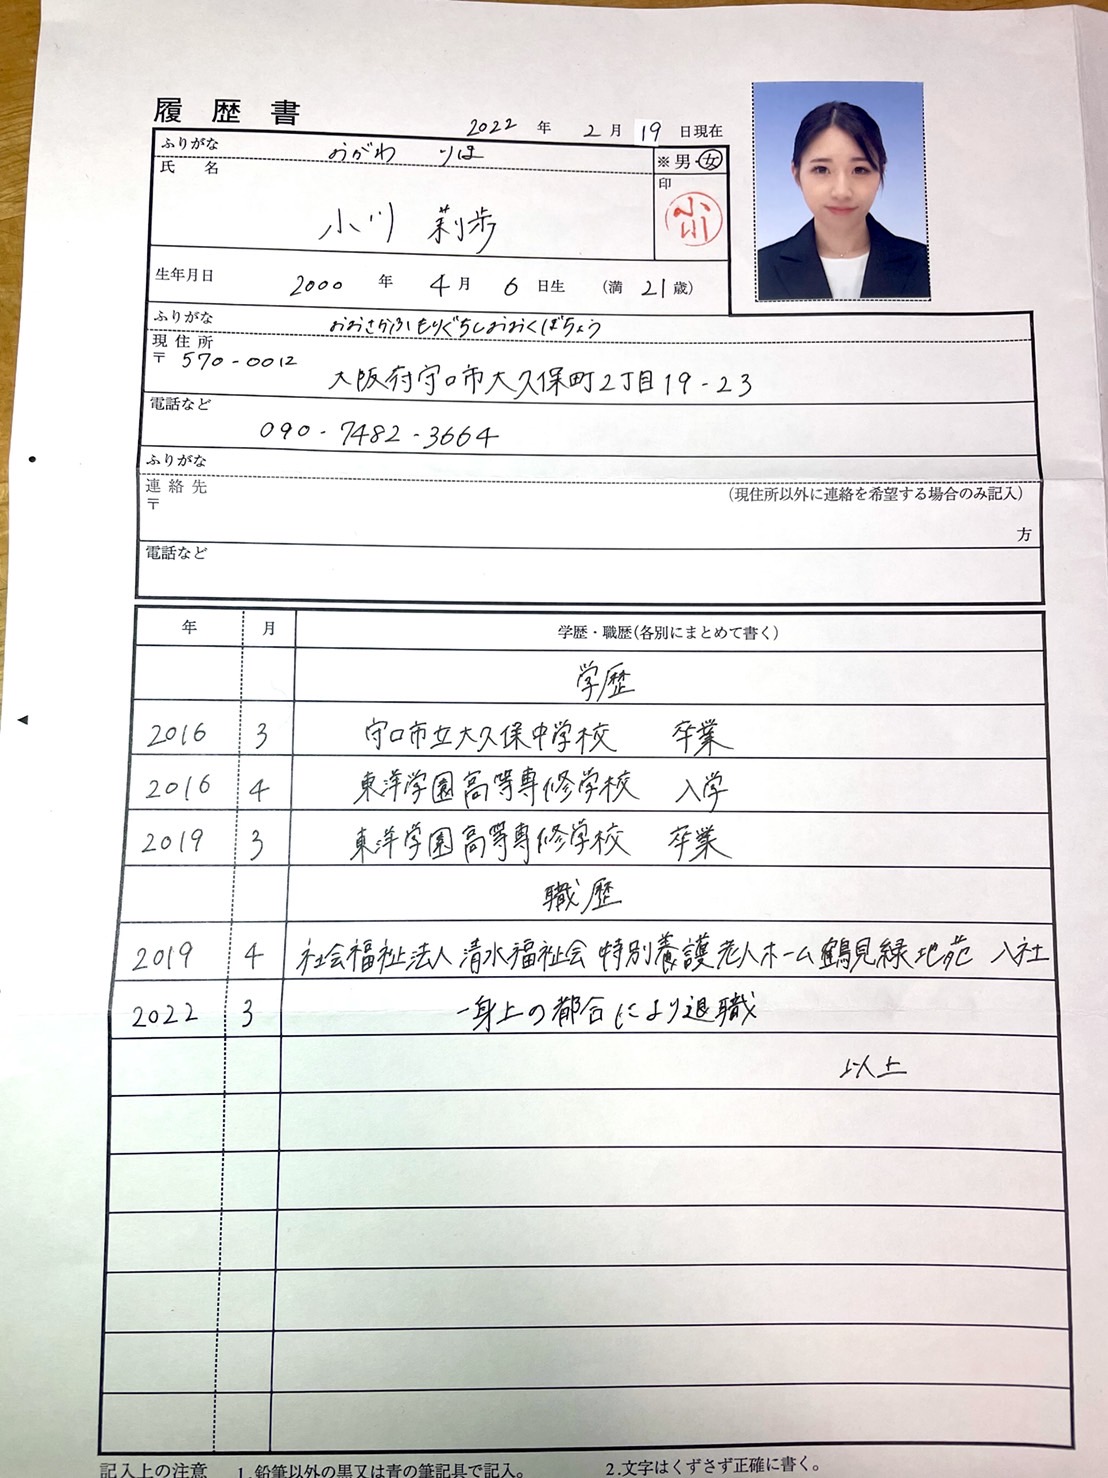 履歴書
2022 年 2 月 19 日現在
ふりがな おがわ りほ
※ 男・女
氏名 小川 莉歩
印 小川
生年月日 2000 年 4 月 6 日生 (満 21 歳)
ふりがな おおさかふもりぐちしおおくぼちょう
現住所
〒 570-0012
大阪府守口市大久保町2丁目19-23
電話など
090-7482-3664
ふりがな
連絡先 (現住所以外に連絡を希望する場合のみ記入)
〒
方
電話など
年 月 学歴・職歴(各別にまとめて書く)
学歴
2016 3 守口市立大久保中学校 卒業
2016 4 東洋学園高等専修学校 入学
2019 3 東洋学園高等専修学校 卒業
職歴
2019 4 社会福祉法人 清水福祉会 特別養護老人ホーム鶴見緑地苑 入社
2022 3 一身上の都合により退職
以上
記入上の注意 1.鉛筆以外の黒又は青の筆記具で記入。 2.文字はくずさず正確に書く。